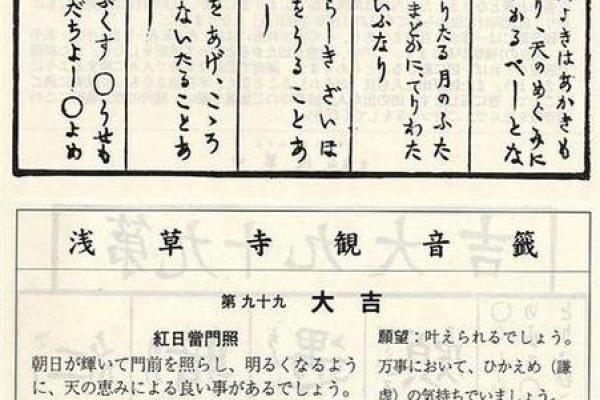 よきはあかきも
り、天のめぐみに
かるべしとな
りたる月のふた
まどかにてりわた
いふなり
らしき ざいほ
をうることあ
し
をあげ、こゝろ
ないたることあ
ぶくす 〇うせも
だちよし〇よめ
浅草寺観音籤
第九十九 大吉
紅日當門照
朝日が輝いて門前を照らし、明るくなるよう
に、天の恵みによる良い事があるでしょう。
願望：叶えられるでしょう。
万事において、ひかえめ（謙
虚）の気持ちでいましょう。